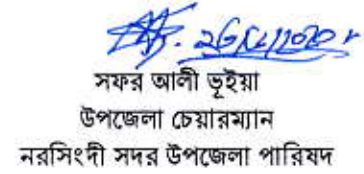 সফর আলী ভূইয়া
উপজেলা চেয়ারম্যান
নরসিংদী সদর উপজেলা পারিষদ